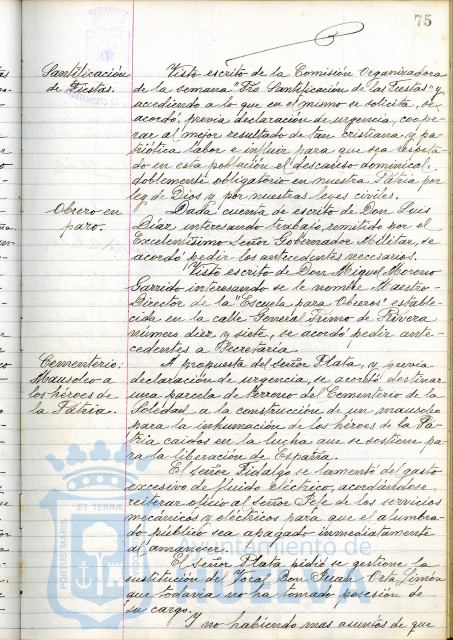 75
Santificación
de Fiestas.
Visto escrito de la Comisión Organizadora
de la semana "Pro Santificación de las Fiestas" y
accediendo a lo que en el mismo se solicita, se
acordó, previa declaración de urgencia, coope-
rar al mejor resultado de tan cristiana y pa-
triótica labor e influir para que sea respeta-
do en esta población el descanso dominical,
doblemente obligatorio en nuestra Patria por
ley de Dios y por nuestras leyes civiles.
Obrero en
paro.
Dada cuenta de escrito de Don Luis
Díaz interesando trabajo, remitido por el
Excelentísimo Señor Gobernador Militar, se
acordó pedir los antecedentes necesarios.
Visto escrito de Don Miguel Moreno
Garrido interesando se le nombre Maestro-
Director de la "Escuela para Obreros" estable-
cida en la calle General Primo de Rivera
número diez y siete, se acordó pedir ante-
cedentes a Secretaría.
Cementerio:
Mausoleo a
los héroes de
la Patria.
A propuesta del Señor Plata, y previa
declaración de urgencia, se acordó destinar
una parcela de terreno del Cementerio de la
Soledad, a la construcción de un mausoleo
para la inhumación de los héroes de la Pa-
tria caidos en la lucha que se sostiene pa-
ra la liberación de España.
El Señor Fidalgo se lamentó del gasto
excesivo de fluido eléctrico, acordándose
reiterar oficio al Señor Jefe de los servicios
mecánicos y eléctricos para que el alumbra-
do público sea apagado inmediatamente
al amanecer.
El Señor Plata pidió se gestione la
sustitución del Vocal Don Juan Orta Limón
que todavía no ha tomado posesión de
su cargo.
Y no habiendo mas asuntos de que
PORTUS MARIS
ET TERRAE
Ayuntamiento de
HUELVA